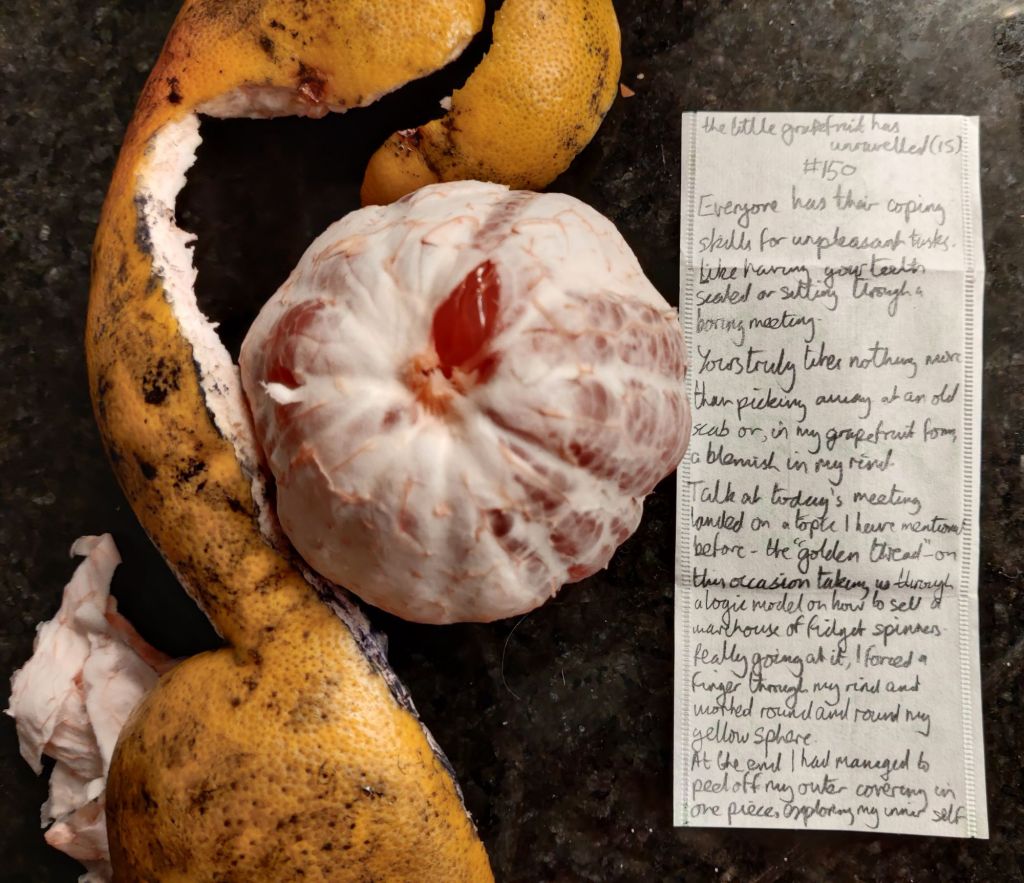 the little grapefruit has
unravelled (15)
#150
Everyone has their coping
skills for unpleasant tasks.
Like having your teeth
scaled or sitting through a
boring meeting.
Yours truly likes nothing more
than picking away at an old
scab or, in my grapefruit form,
a blemish in my rind.
Talk at today's meeting
landed on a topic I have mentioned
before - the "golden thread" - on
this occasion taking us through
a logic model on how to sell a
warehouse of fidget spinners.
Really going at it, I forced a
finger through my rind and
worked round and round my
yellow sphere.
At the end I had managed to
peel off my outer covering in
one piece, exploring my inner self